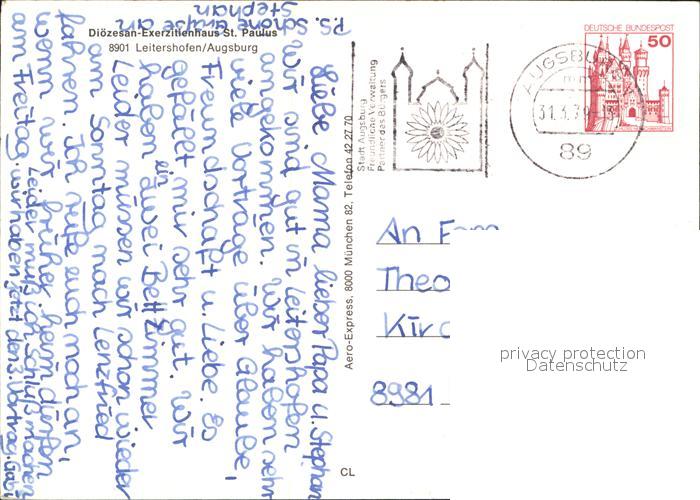 Diözesan-Exerzitienhaus St. Paulus
8901 Leitershofen/Augsburg
Liebe Mama lieber Papa u. Stephan
Wir sind gut in Leitershofen
angekommen. Wir haben sehr
viele Vorträge über Glaube,
Freundschaft u. Liebe. Es
gefällt mir sehr gut. Wir
haben ein zwei Bettzimmer
Leider müssen wir schon wieder
am Sonntag nach Lenzfried
fahren. Ich rufe euch noch an,
wenn wir früher heim dürfen
Leider muß ich Schluß machen
am Freitag. wir haben jetzt den 3. Vortrag. Gabi
P.S. Schöne Grüße an
Stephan
Aero-Express, 8000 München 82, Telefon 42 27 70
CL
Stadt Augsburg
Freundliche Verwaltung
Partner des Bürgers
AUGSBU
31.3.79
89
DEUTSCHE BUNDESPOST
50
An Fam
Theo
Kirc
8981
privacy protection
Datenschutz